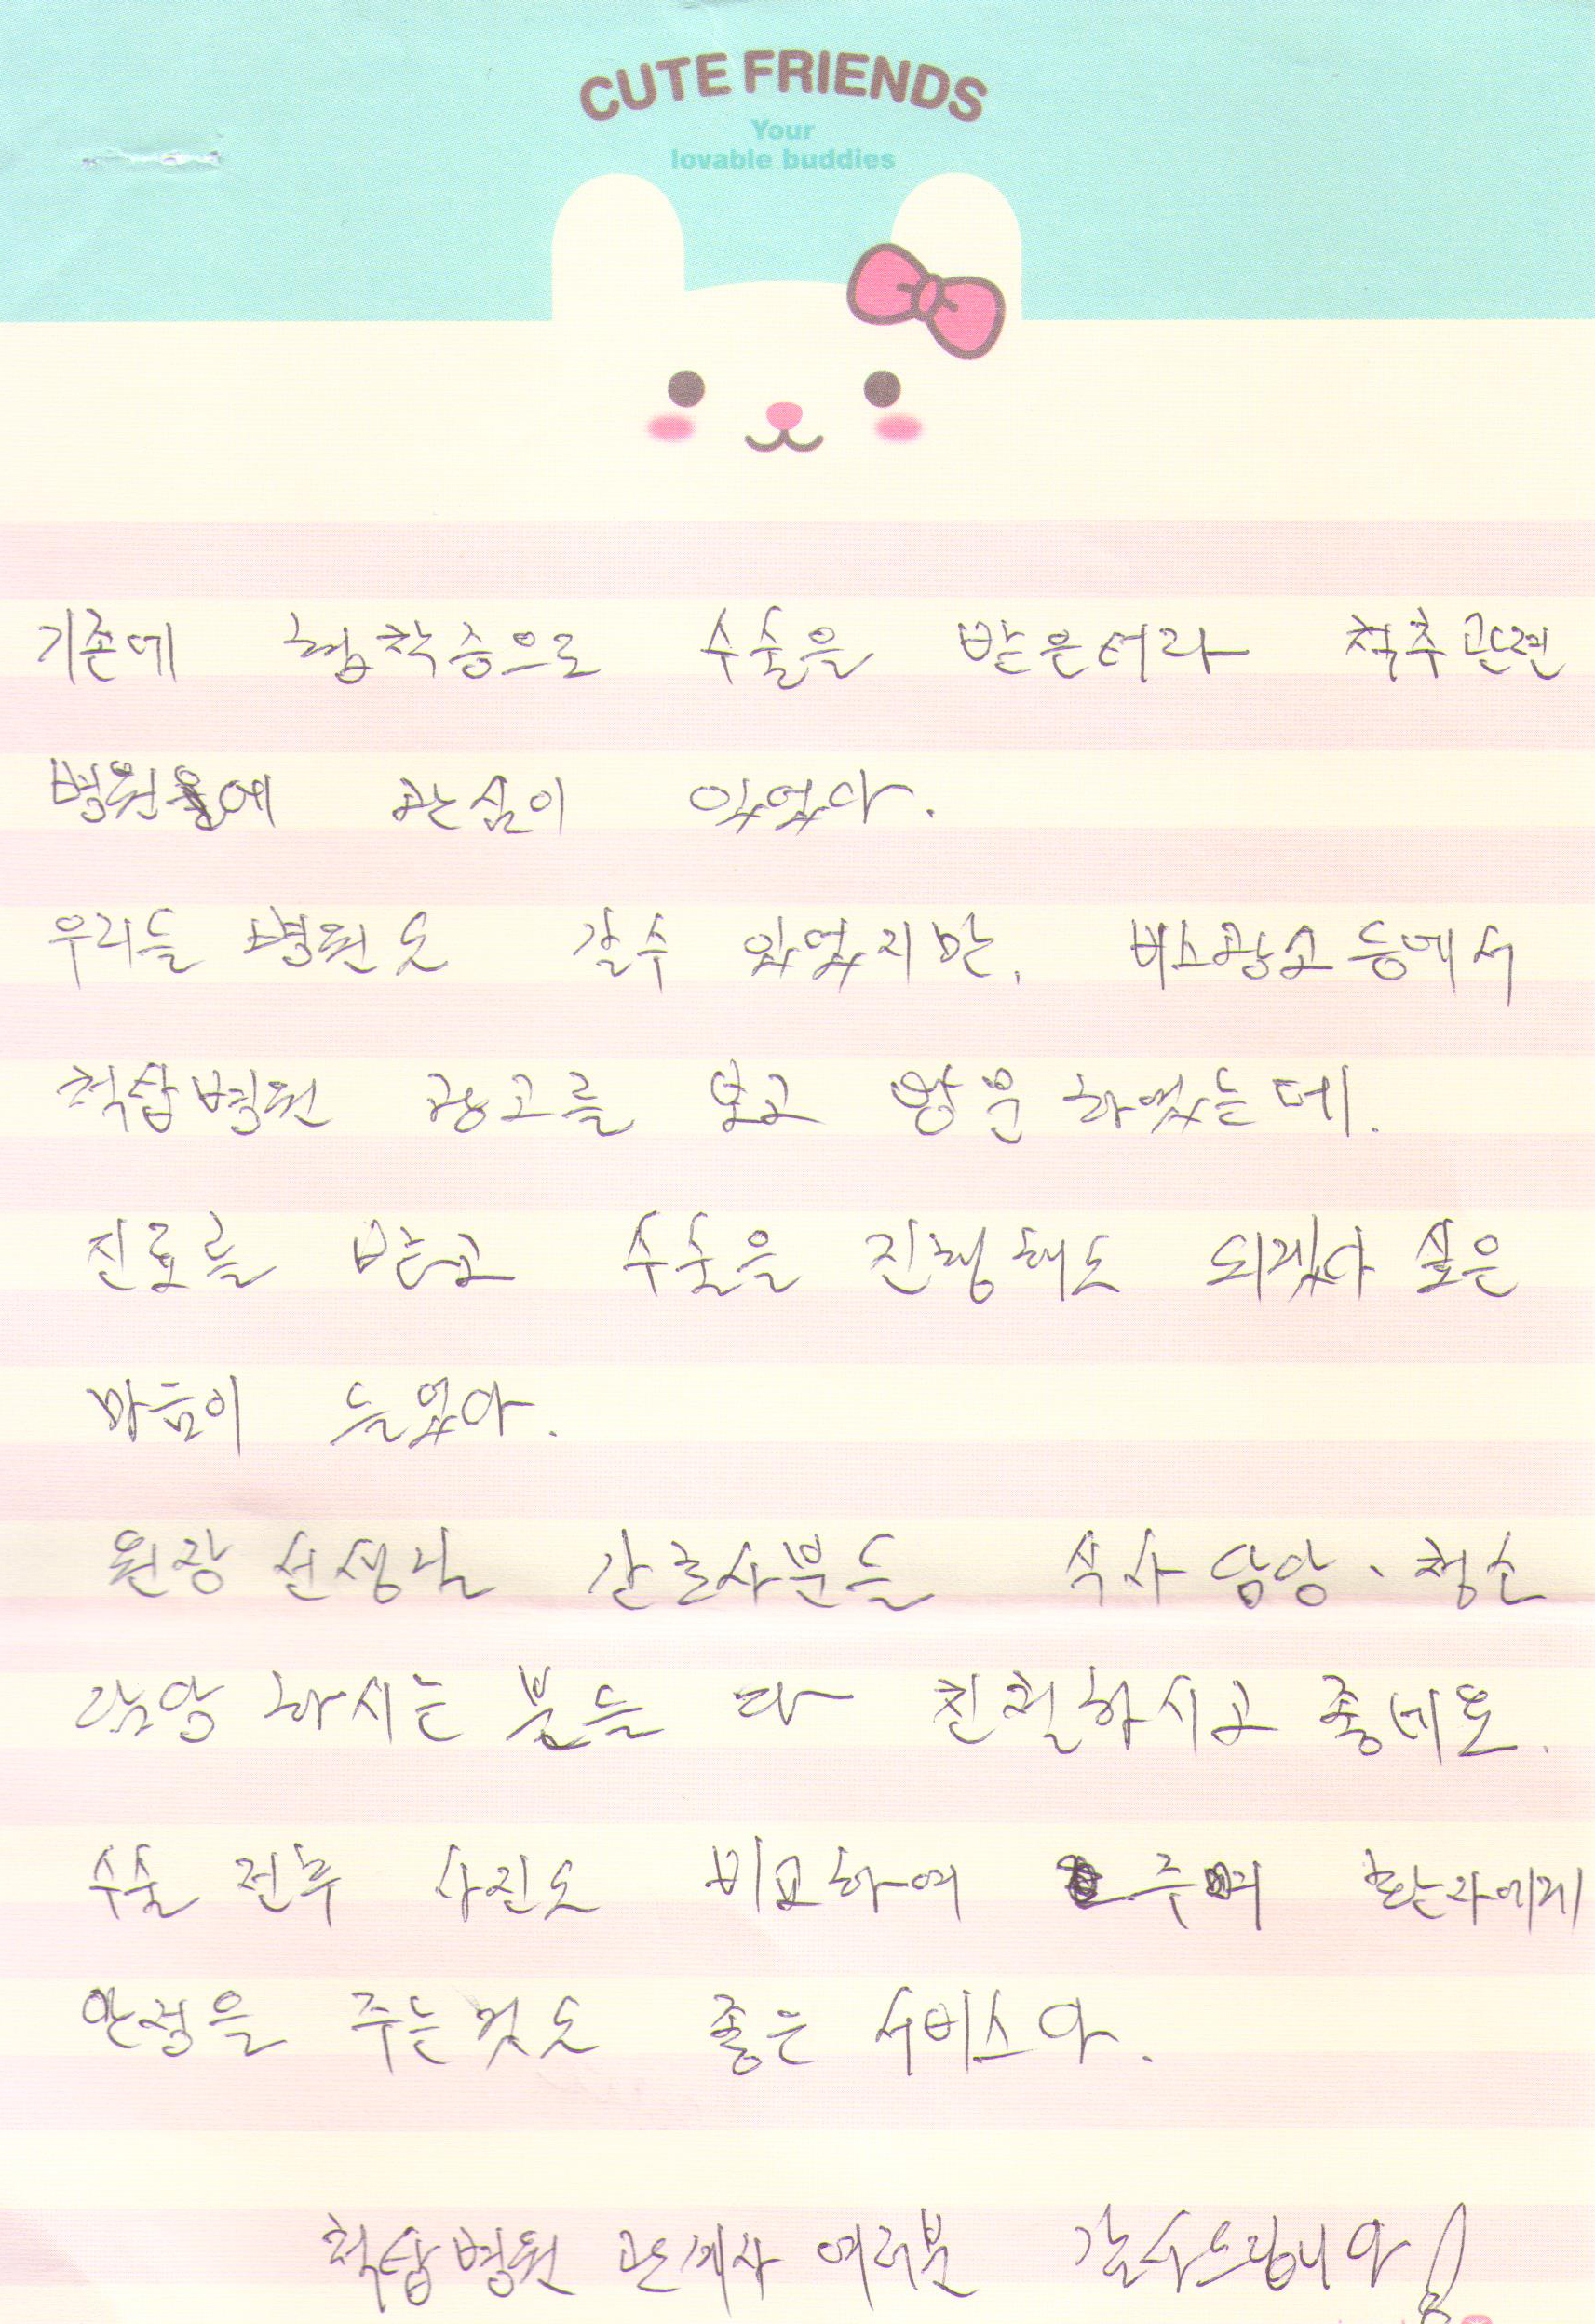 CUTE FRIENDS
Your
lovable buddies
기존에 협착증으로 수술을 받은터라 척추관련
병원에 관심이 있었다.
우리들 병원도 갈수 있었지만, 버스광고 등에서
척탑병원 광고를 보고 방문 하였는데.
진료를 받고 수술을 진행해도 되겠다 싶은
마음이 들었다.
원장 선생님 간호사분들 식사 담당, 청소
담당 하시는 분들 다 친절하시고 좋네요.
수술 전후 사진도 비교하여 주며 환자에게
안정을 주는것도 좋은 서비스다.
척탑병원 관계자 여러분 감사드립니다!